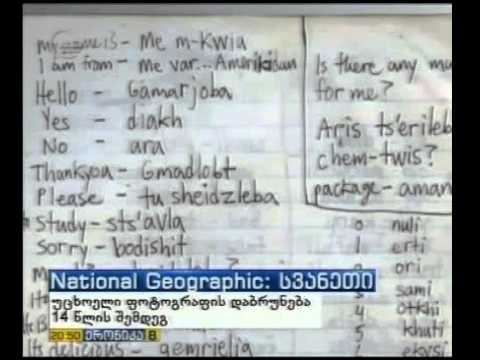 my name is - Me m-kwia
I am from - me var... Amerikidan
Hello - Gamarjoba
Yes - diakh
No - ara
Thankyou - Gmadlobt
Please - tu sheidzleba
Study - sts'avla
Sorry - bodishit
Is there any
for me?
Aris ts'erileb
chem-twis?
package - aman
0 nuli
1 erti
ori
3 sami
4 otkhi
5 khuti
delicious - gemrielia
National Geographic: სვანეთი
უცხოელი ფოტოგრაფის დაბრუნება
14 წლის შემდეგ
20:50 ქრონიკა 8